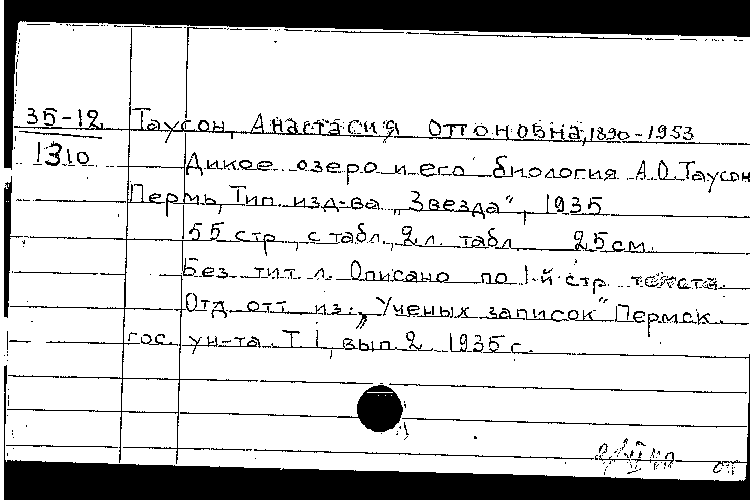 35-12 Таусон, Анастасия Оттоновна, 1890-1953
1310 Дикое озеро и его биология А.О. Таусон
Пермь, Тип. изд-ва „Звезда“, 1935
55 стр., с табл., 2 л. табл 25 см.
Без тит. л. Описано по 1-й стр текста.
Отд. отт. из: „Ученых записок“ Пермск.
гос. ун-та. Т 1, вып. 2 1935 г.